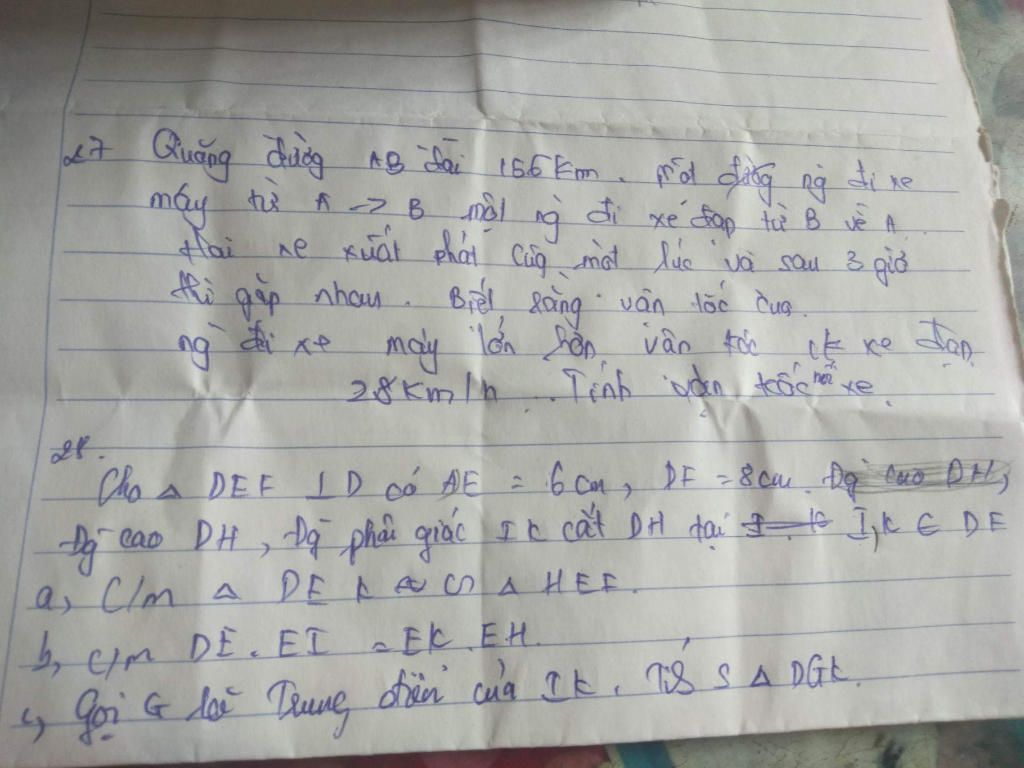 27 Quãng đường AB dài 156 Km. một đường ng đi xe
máy từ A -> B một ng đi xe đạp từ B về A.
Hai xe xuất phát cùng một lúc và sau 3 giờ
thì gặp nhau. Biết rằng vân tốc của
ng đi xe máy lớn hơn vân tốc xe đạp
28 Km/h. Tính vận tốc mỗi xe.
28.
Cho △ DEF ⊥ D có DE = 6 cm, DF = 8 cm. Đg cao DH,
Đg cao DH, Đg phân giác IK cắt DH tại I, K ∈ DF
a, C/m △ DEK ∽ △ HEF.
b, c/m DE. EI = EK. EH.
c, Gọi G là Trung điểm của IK. S △ DGK.